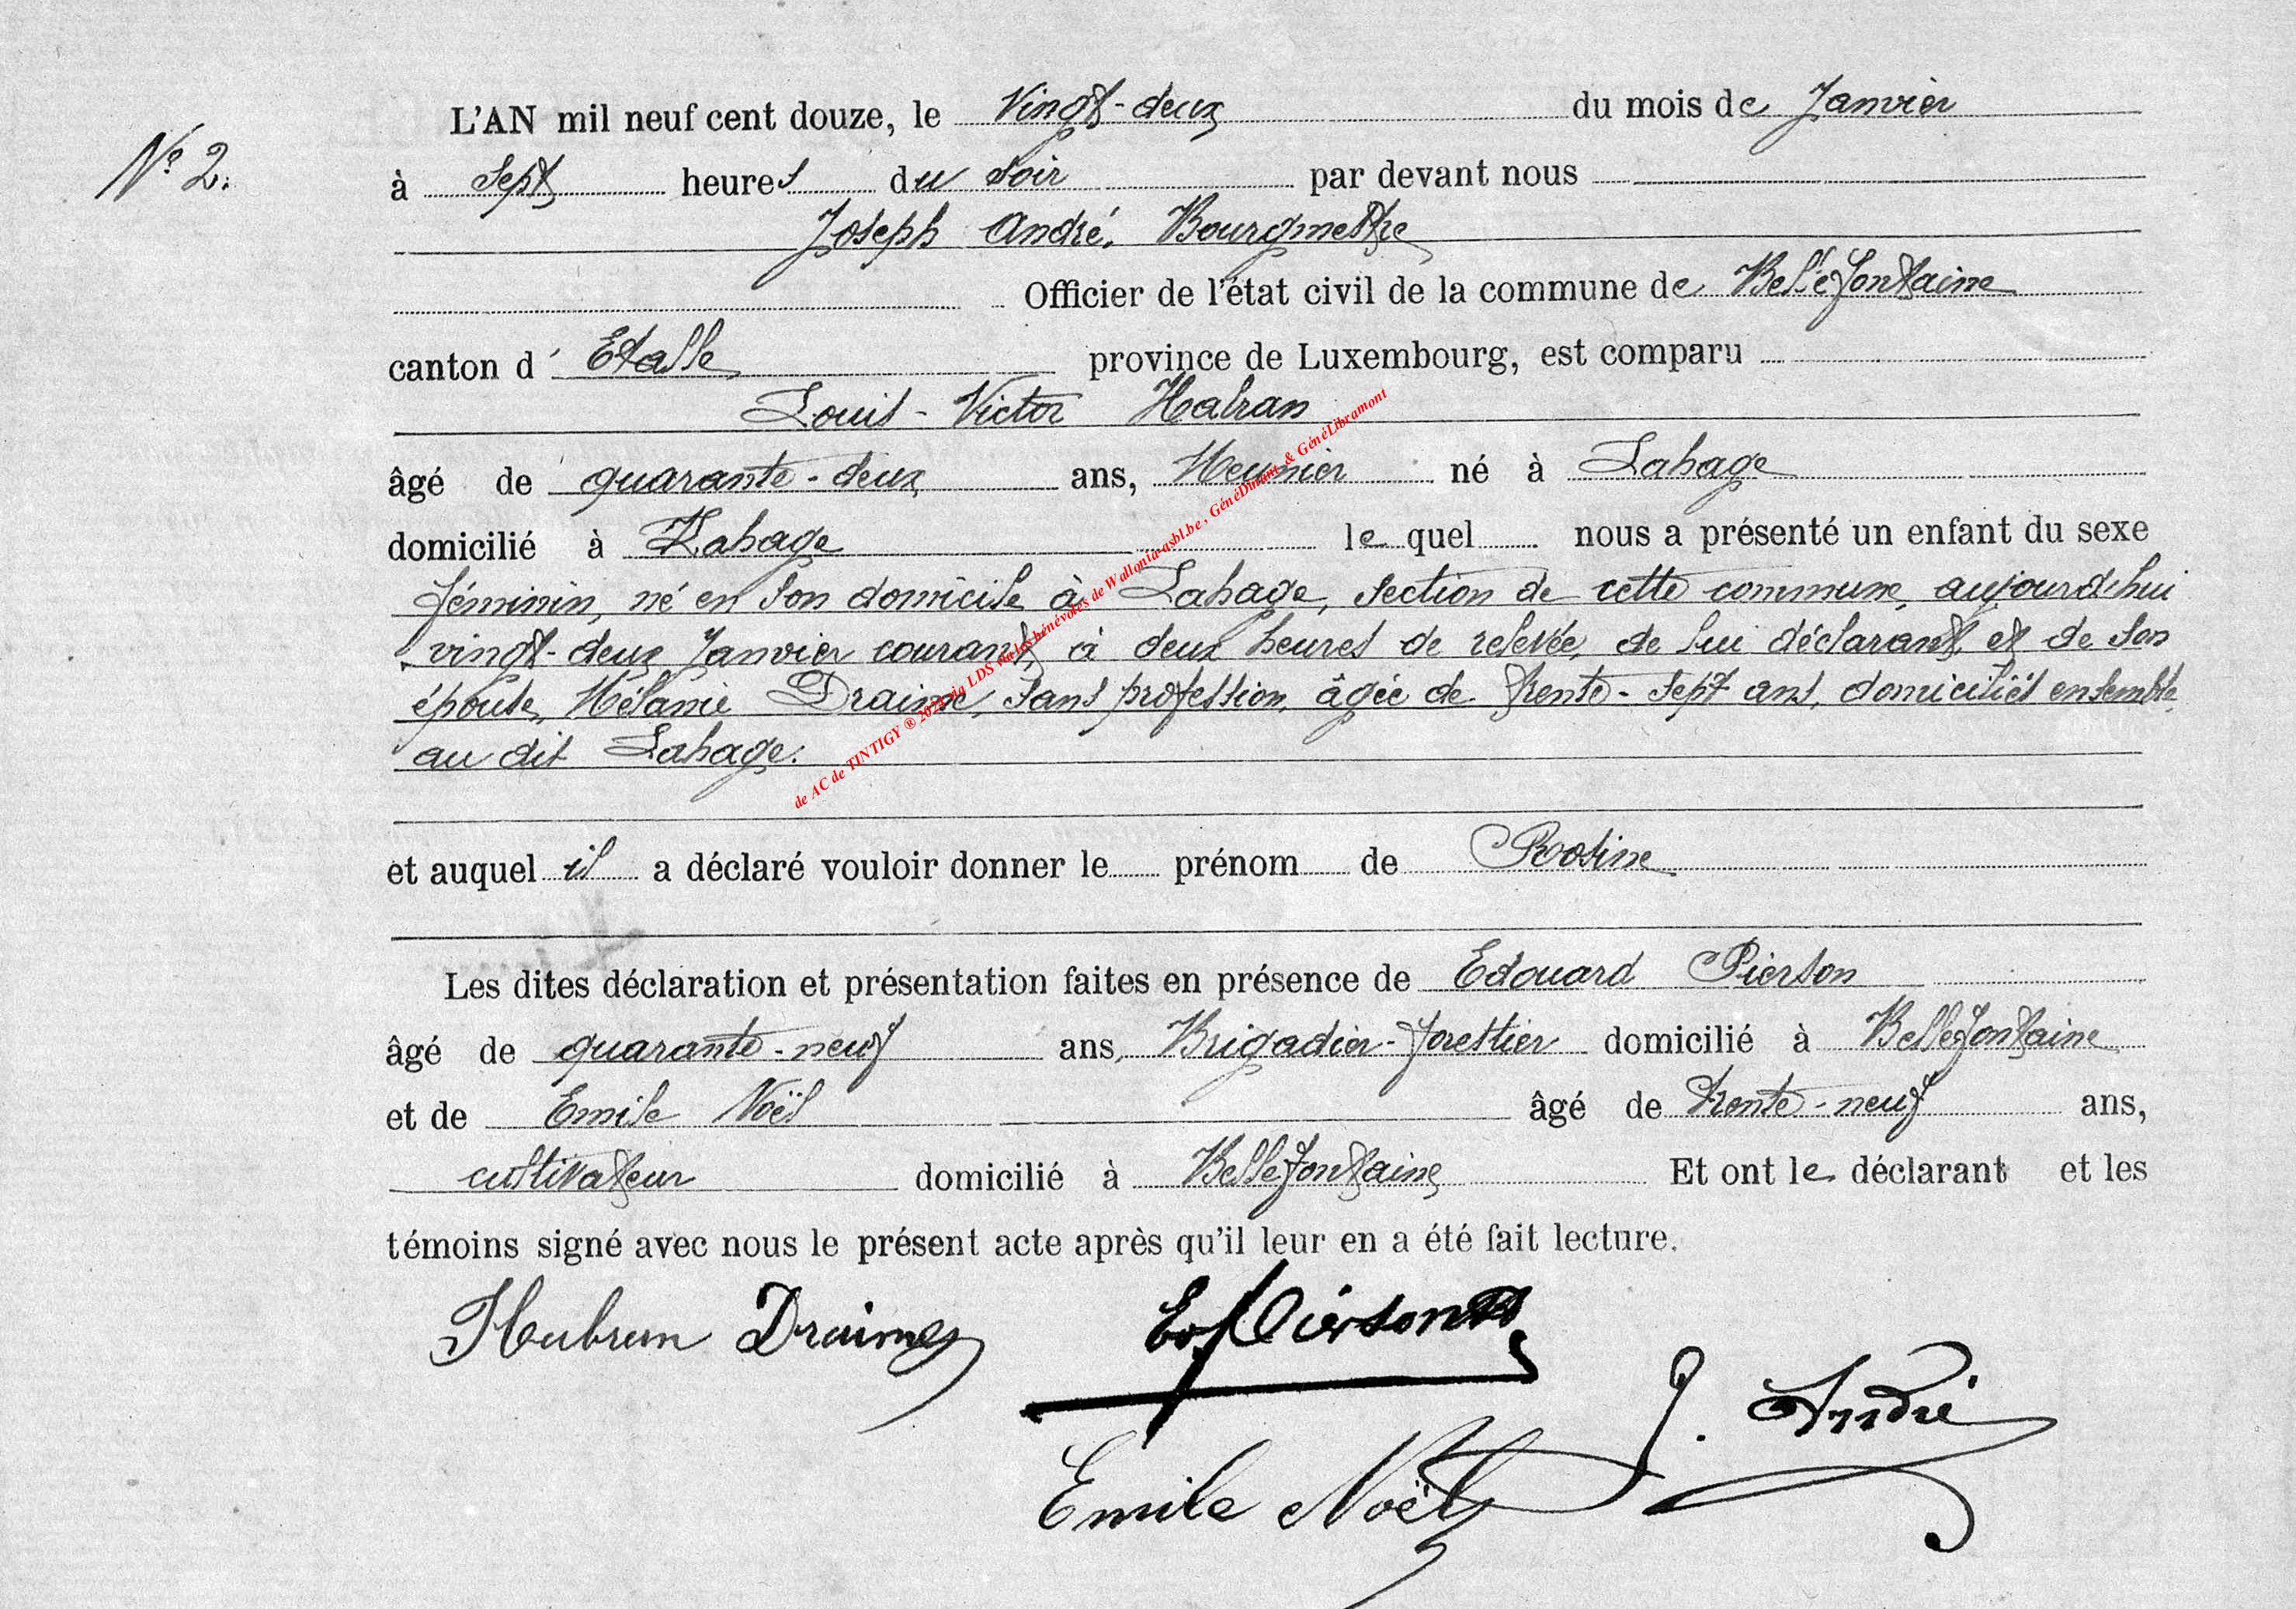 L'AN mil neuf cent douze, le Vingt-deux du mois de Janvier
N° 2.
à Sept heures du soir par devant nous
Joseph André, Bourgmestre
Officier de l'état civil de la commune de Bellefontaine
canton d'Etalle province de Luxembourg, est comparu
Louis-Victor
âgé de quarante-deux ans, Meunier né à Lahage
domicilié à Lahage lequel nous a présenté un enfant du sexe
féminin, né en son domicile à Lahage, section de cette commune, aujourd'hui
vingt-deux Janvier courant, à deux heures de relevée, de lui déclarant, et de son
épouse, Mélanie Draime, sans profession, âgée de trente-sept ans, domiciliés ensemble
au dit Lahage.
et auquel il a déclaré vouloir donner le prénom de Rosine
Les dites déclaration et présentation faites en présence de Edouard Pierson
âgé de quarante-neuf ans, Brigadier-forestier domicilié à Bellefontaine
et de Emile Noël âgé de trente-neuf ans,
cultivateur domicilié à Bellefontaine Et ont le déclarant et les
témoins signé avec nous le présent acte après qu'il leur en a été fait lecture.
Draime Pierson
J. André
Emile Noël
de AC de TINTIGY ® LDS via les bénévoles de Wallonia-asbl.be, GénéDinant & GénéLibramont